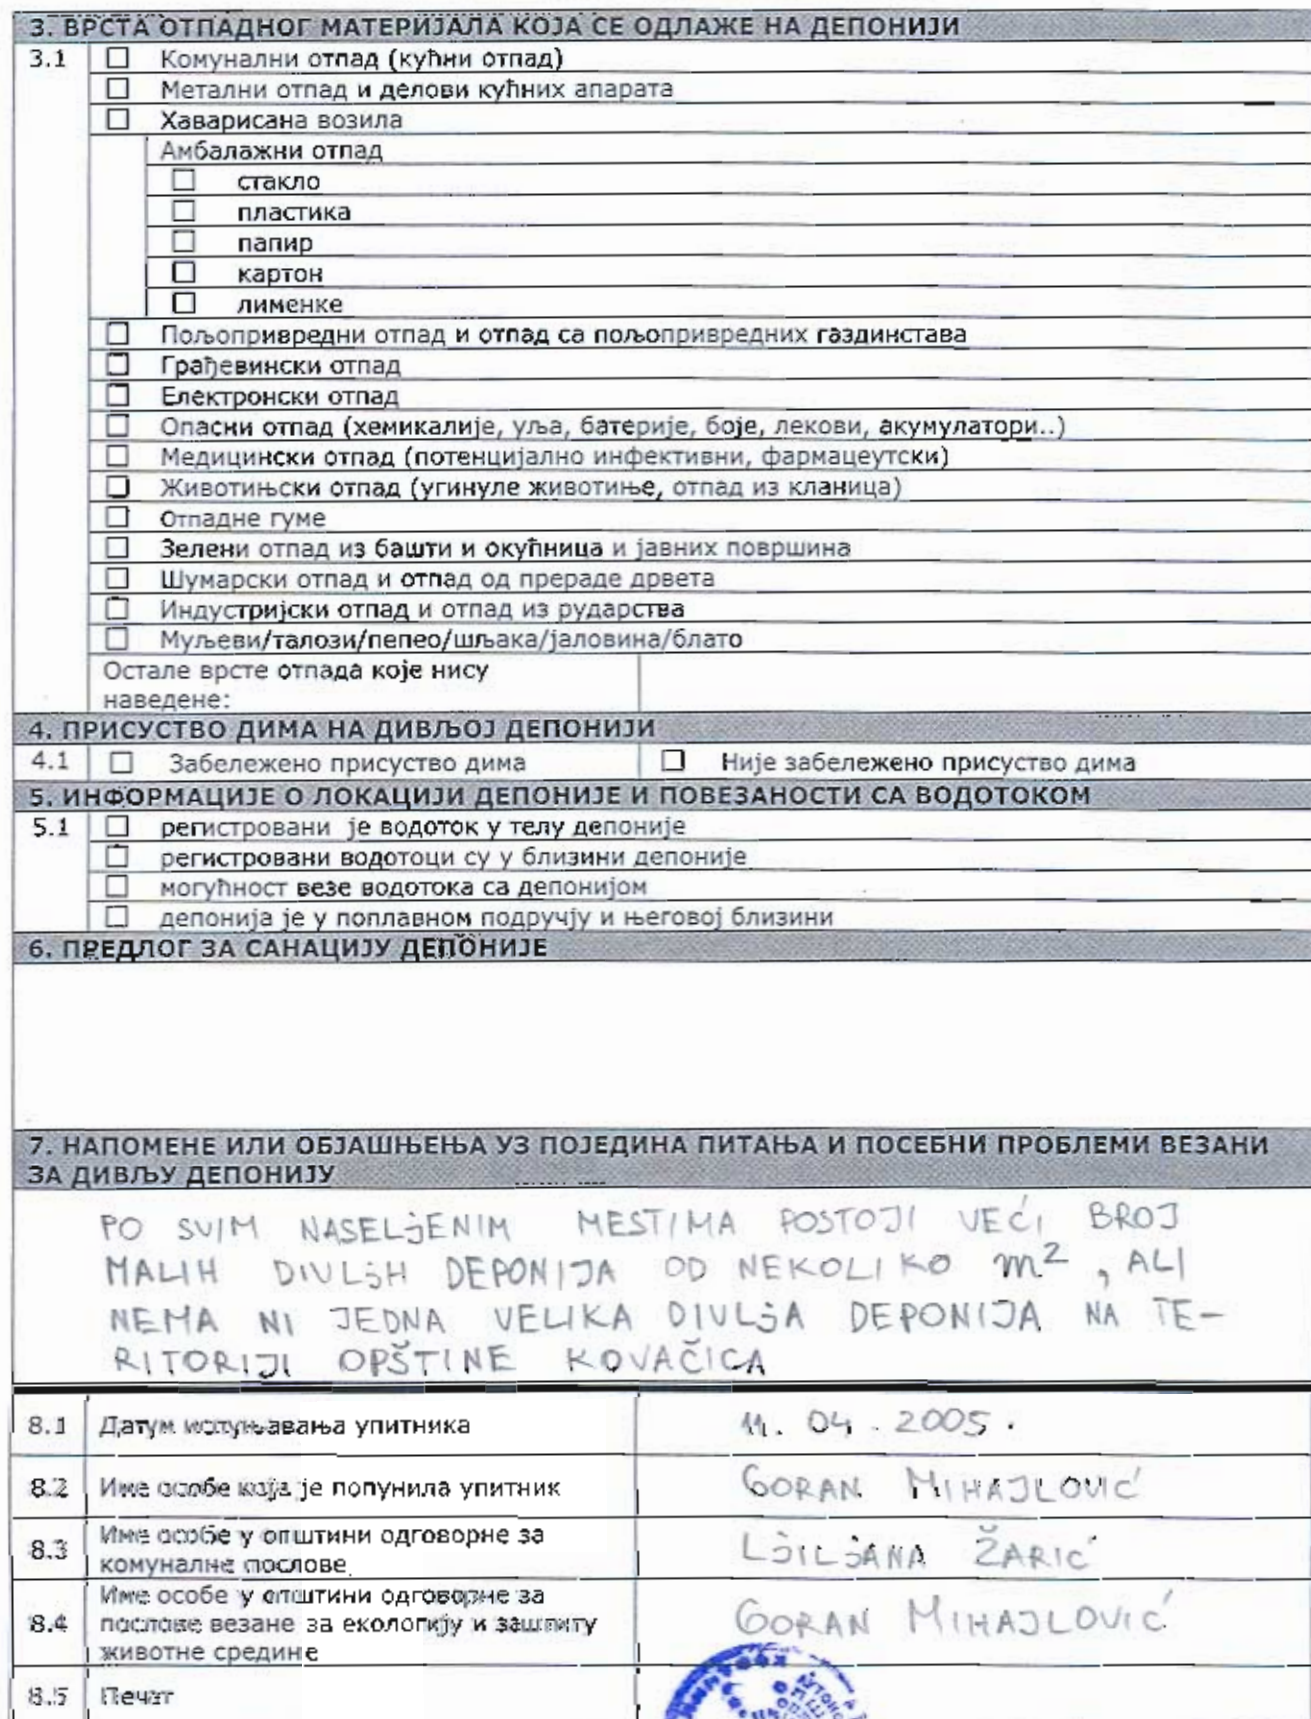 3. ВРСТА ОТПАДНОГ МАТЕРИЈАЛА КОЈА СЕ ОДЛАЖЕ НА ДЕПОНИЈИ
3.1 ☐ Комунални отпад (кућни отпад)
☐ Метални отпад и делови кућних апарата
☐ Хаварисана возила
Амбалажни отпад
☐ стакло
☐ пластика
☐ папир
☐ картон
☐ лименке
☐ Пољопривредни отпад и отпад са пољопривредних газдинстава
☐ Грађевински отпад
☐ Електронски отпад
☐ Опасни отпад (хемикалије, уља, батерије, боје, лекови, акумулатори..)
☐ Медицински отпад (потенцијално инфективни, фармацеутски)
☐ Животињски отпад (угинуле животиње, отпад из кланица)
☐ Отпадне гуме
☐ Зелени отпад из башти и окућница и јавних површина
☐ Шумарски отпад и отпад од прераде дрвета
☐ Индустријски отпад и отпад из рударства
☐ Муљеви/талози/пепео/шљака/јаловина/блато
Остале врсте отпада које нису
наведене:
4. ПРИСУСТВО ДИМА НА ДИВЉОЈ ДЕПОНИЈИ
4.1 ☐ Забележено присуство дима ☐ Није забележено присуство дима
5. ИНФОРМАЦИЈЕ О ЛОКАЦИЈИ ДЕПОНИЈЕ И ПОВЕЗАНОСТИ СА ВОДОТОКОМ
5.1 ☐ регистровани је водоток у телу депоније
☐ регистровани водотоци су у близини депоније
☐ могућност везе водотока са депонијом
☐ депонија је у поплавном подручју и његовој близини
6. ПРЕДЛОГ ЗА САНАЦИЈУ ДЕПОНИЈЕ
7. НАПОМЕНЕ ИЛИ ОБЈАШЊЕЊА УЗ ПОЈЕДИНА ПИТАЊА И ПОСЕБНИ ПРОБЛЕМИ ВЕЗАНИ
ЗА ДИВЉУ ДЕПОНИЈУ
PO SVIM NASELJENIM MESTIMA POSTOJI VEĆI BROJ
MALIH DIVLJH DEPONIJA OD NEKOLIKO m², ALI
NEMA NI JEDNA VELIKA DIVLJA DEPONIJA NA TE-
RITORIJI OPŠTINE KOVAČICA
8.1 Датум испуњавања упитника 11. 04. 2005.
8.2 Име особе која је попунила упитник GORAN MIHAJLOVIĆ
8.3 Име особе у општини одговорне за
комуналне послове LJILJANA ŽARIĆ
8.4 Име особе у општини одговорне за
послове везане за екологију и заштиту
животне средине GORAN MIHAJLOVIĆ
8.5 Печат